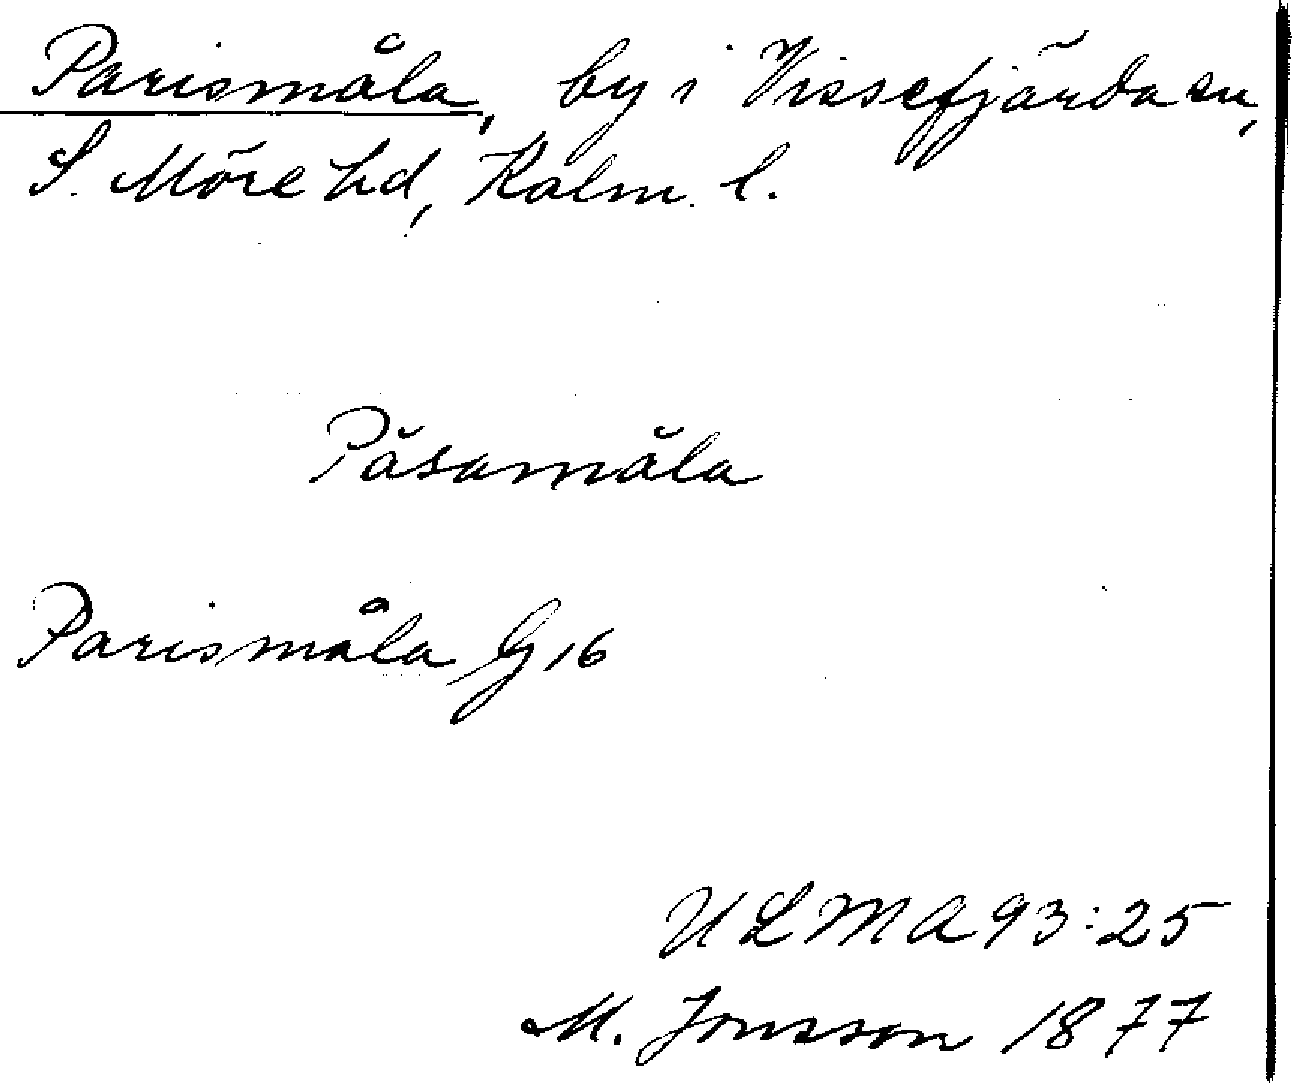 Parismåla, by i Vissefjärda sn,
S. Möre hd, Kalm. l.
Påsamåla
Parismåla G 16
ULMA 93:25
M. Jonsson 1877